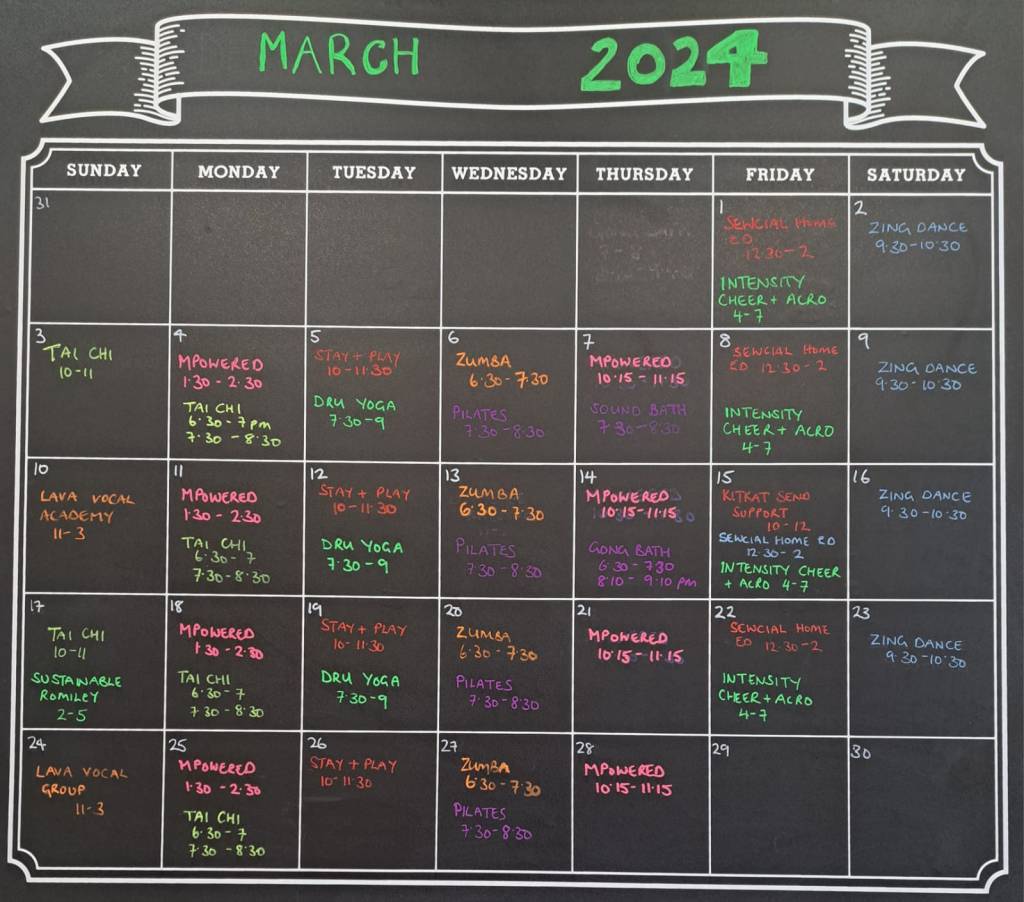 MARCH 2024
SUNDAY MONDAY TUESDAY WEDNESDAY THURSDAY FRIDAY SATURDAY
31
1
SEWCIAL HOME
ED
12.30-2
INTENSITY
CHEER + ACRO
4-7
2
ZING DANCE
9.30-10.30
3
TAI CHI
10-11
4
MPOWERED
1.30-2.30
TAI CHI
6.30-7pm
7.30-8.30
5
STAY + PLAY
10-11.30
DRU YOGA
7.30-9
6
ZUMBA
6.30-7.30
PILATES
7.30-8.30
7
MPOWERED
10.15-11.15
SOUND BATH
7.30-8.30
8
SEWCIAL HOME
ED 12.30-2
INTENSITY
CHEER + ACRO
4-7
9
ZING DANCE
9.30-10.30
10
LAVA VOCAL
ACADEMY
11-3
11
MPOWERED
1.30-2.30
TAI CHI
6.30-7
7.30-8.30
12
STAY + PLAY
10-11.30
DRU YOGA
7.30-9
13
ZUMBA
6.30-7.30
PILATES
7.30-8.30
14
MPOWERED
10.15-11.15
GONG BATH
6.30-7.30
8.10-9.10pm
15
KITKAT SEND
SUPPORT
10-12
SEWCIAL HOME ED
12.30-2
INTENSITY CHEER
+ ACRO 4-7
16
ZING DANCE
9.30-10.30
17
TAI CHI
10-11
SUSTAINABLE
ROMILEY
2-5
18
MPOWERED
1.30-2.30
TAI CHI
6.30-7
7.30-8.30
19
STAY + PLAY
10-11.30
DRU YOGA
7.30-9
20
ZUMBA
6.30-7.30
PILATES
7.30-8.30
21
MPOWERED
10.15-11.15
22
SEWCIAL HOME
ED 12.30-2
INTENSITY
CHEER + ACRO
4-7
23
ZING DANCE
9.30-10.30
24
LAVA VOCAL
GROUP
11-3
25
MPOWERED
1.30-2.30
TAI CHI
6.30-7
7.30-8.30
26
STAY + PLAY
10-11.30
27
ZUMBA
6.30-7.30
PILATES
7.30-8.30
28
MPOWERED
10.15-11.15
29
30